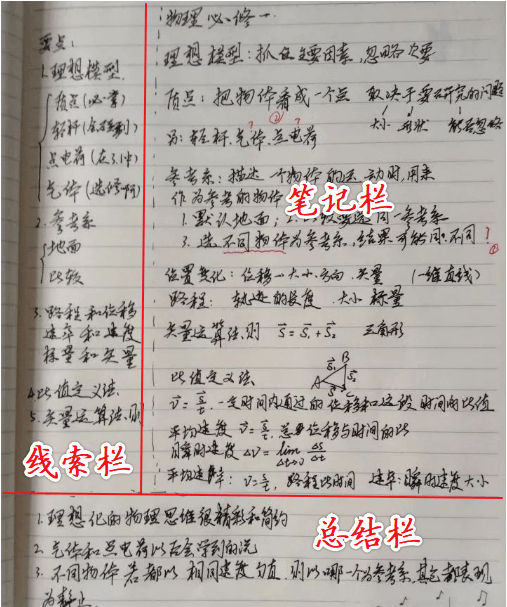 要点:
1.理想模型
质点(必考)
轻杆(会碰到)
点电荷(在3.1中)
气体(选修啊)
2.参考系
地面
比较
3.路程和位移
速率和速度
标量和矢量
4.比值定义法
5.矢量运算法则
线索栏
物理必修一
理想模型:抓住主要因素,忽略次要
质点:把物体看成一个点 取决于要研究的问题
大小 形状 能否忽略
如:轻杆.气体.点电荷
?
②
?
参考系:描述一个物体的运动时,用来
作为参考的物体
笔记栏
1.默认地面;2.同一参考系
3.选不同物体为参考系,结果可能同.不同?
①
位置变化:位移-大小.方向.矢量 (一维直线)
路程:轨迹的长度.大小 标量
矢量运算法则 S=S₁+S₂ 三角形
A B C
比值定义法
一定时间内通过的位移和这段时间的比值
平均速度 总位移与时间的比
瞬时速度 ΔV=lim Δs/Δt
Δt→0
平均速率:V=s/t,路程比时间 速率:瞬时速度大小
总结栏
1.理想化的物理思维很精彩和简约
2.气体和点电荷以后会学到的说
3.不同物体若都以相同速度匀直,则以哪一个为参考系,其它都表现
为静止